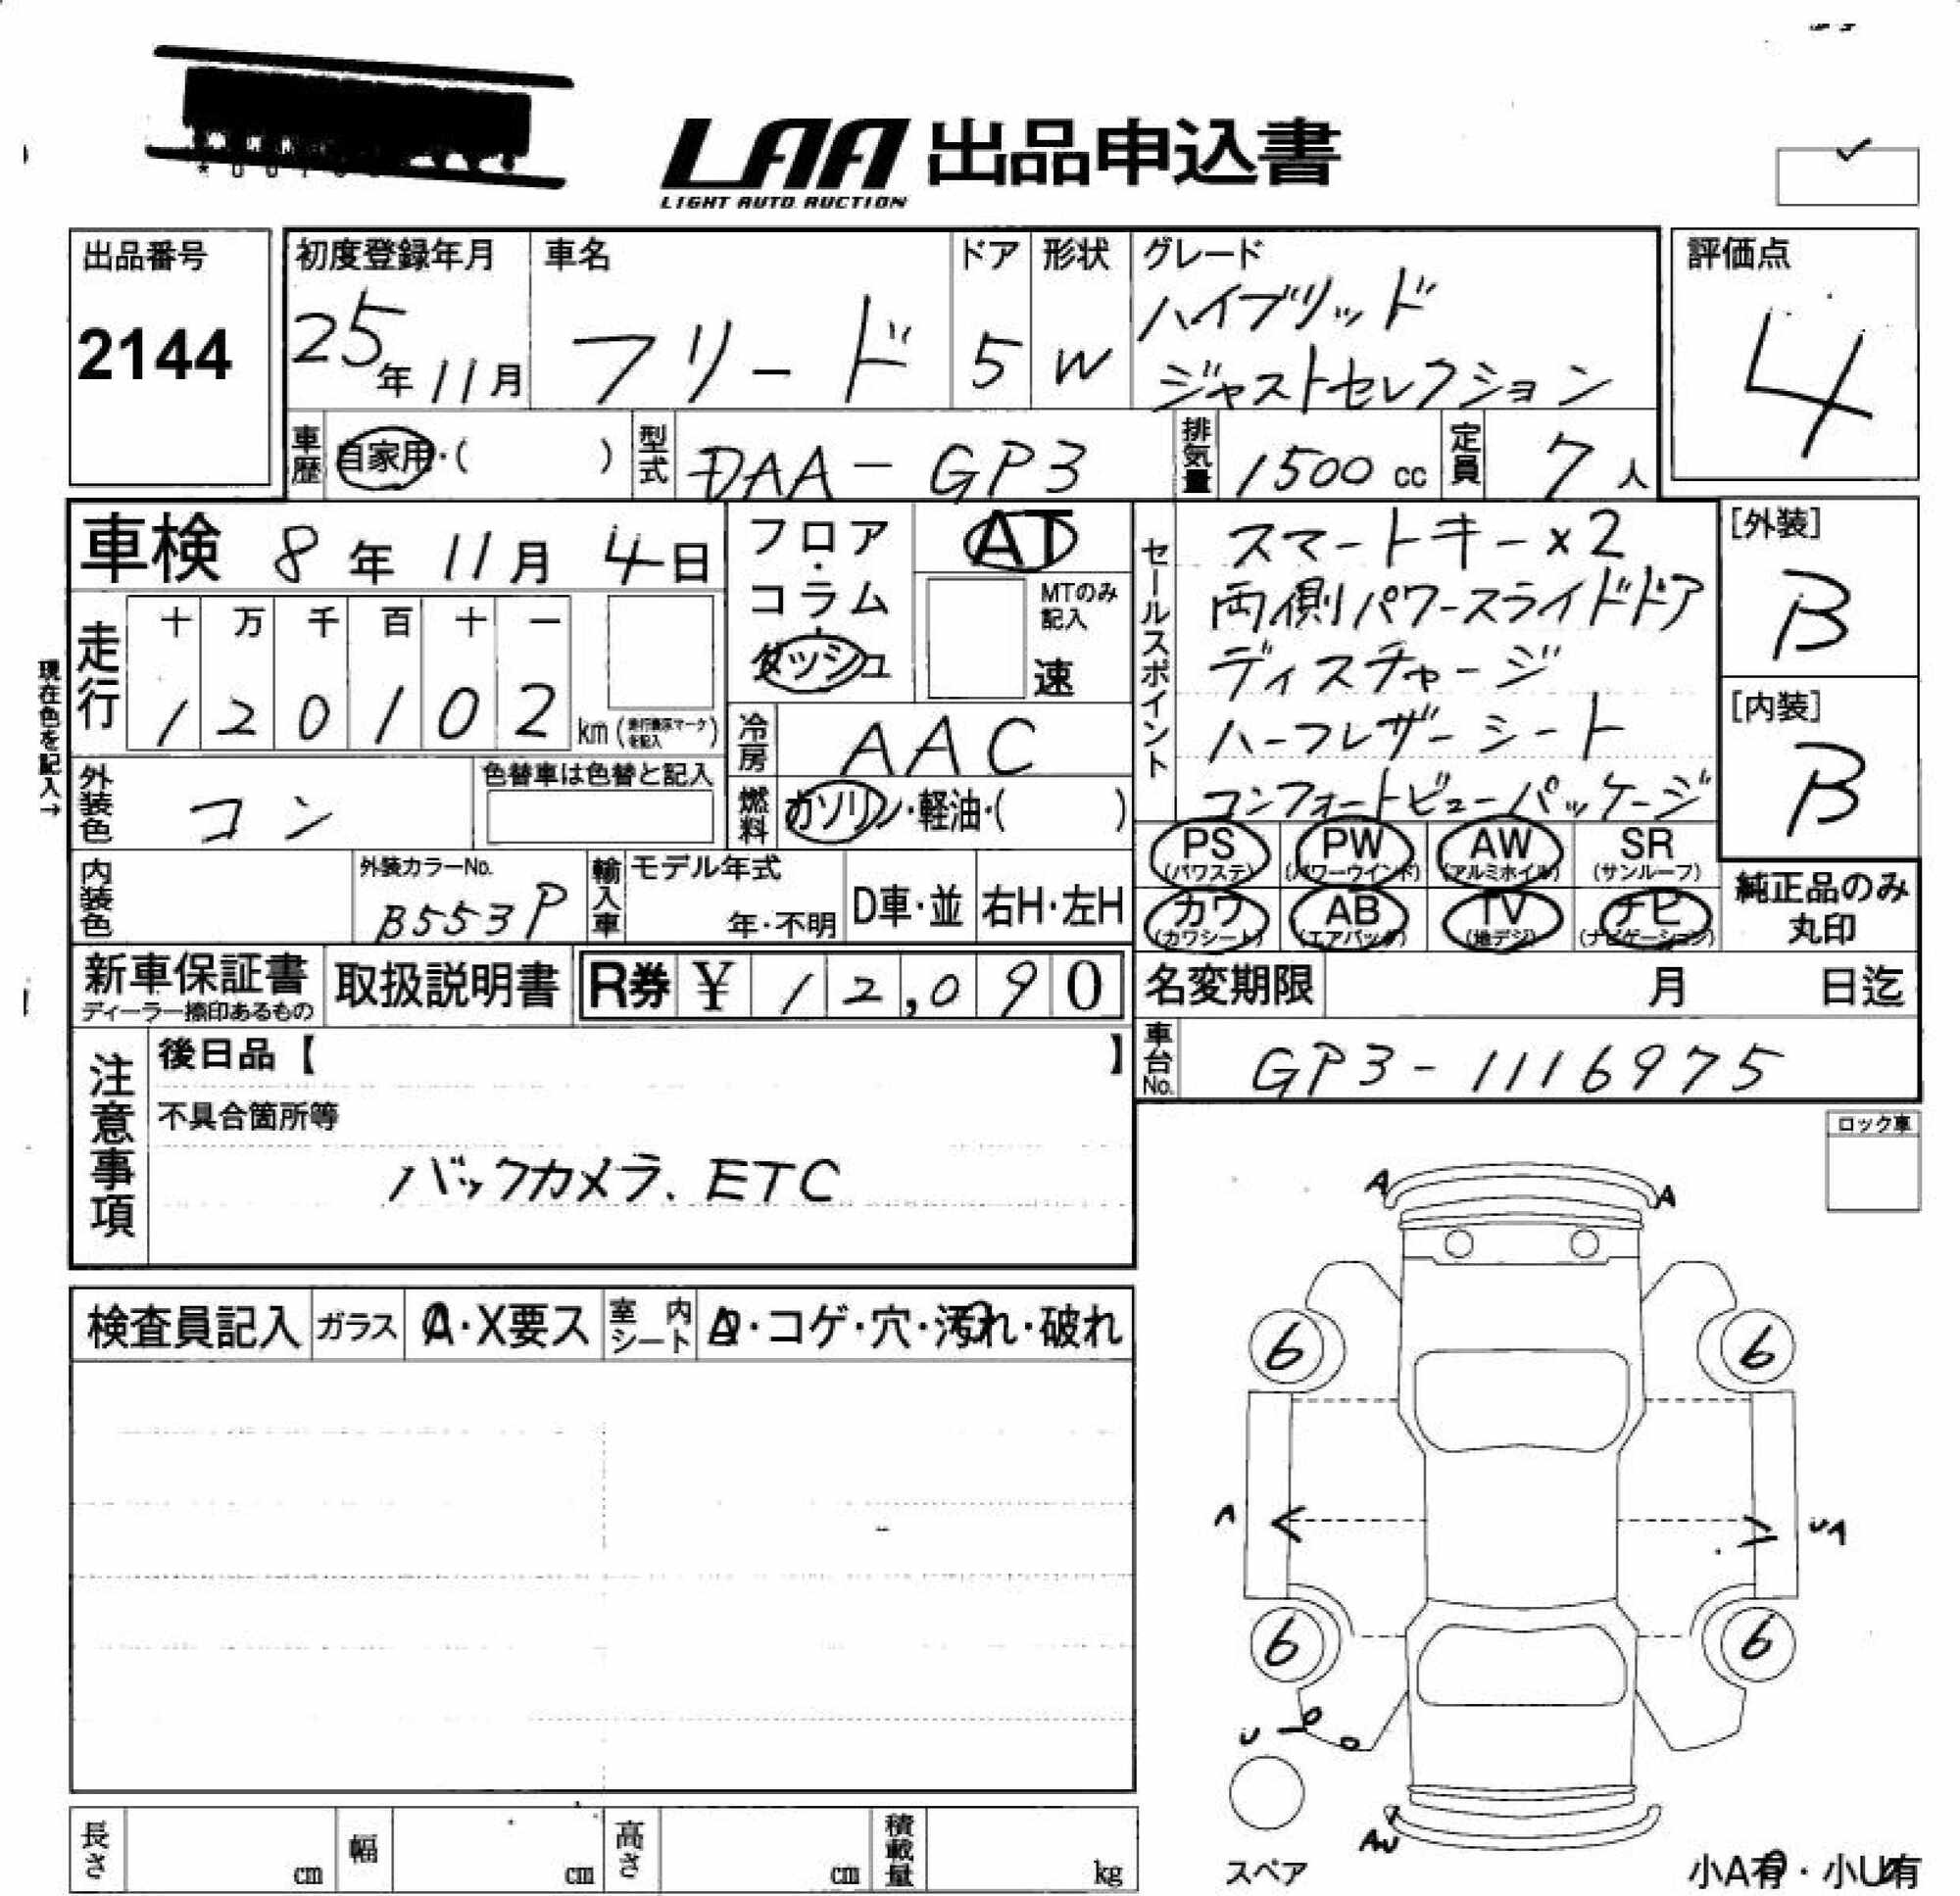 LAA 出品申込書
LIGHT AUTO AUCTION
出品番号
2144
初度登録年月
25年11月
車名
フリード
ドア
5
形状
W
グレード
ハイブリッド
ジャストセレクション
評価点
4
車歴
自家用・( )
型式
DAA-GP3
排気量
1500 cc
定員
7人
車検 8年 11月 4日
フロア・コラム・ダッシュ
AT
MTのみ記入
速
走行
十 万 千 百 十 一
1 2 0 1 0 2
km
現在色を記入→
冷房
AAC
外装色
コン
色替車は色替と記入
燃料
ガソリン・軽油・( )
セールスポイント
スマートキー×2
両側パワースライドドア
ディスチャージ
ハーフレザーシート
コンフォートビューパッケージ
[外装]
B
[内装]
B
PS (パワステ)
PW (パワーウインド)
AW (アルミホイル)
SR (サンルーフ)
カワ (カワシート)
AB (エアバッグ)
TV (地デジ)
ナビ (ナビゲーション)
純正品のみ
丸印
内装色
外装カラーNo.
B553P
輸入車
モデル年式
年・不明
D車・並
右H・左H
新車保証書
ディーラー捺印あるもの
取扱説明書
R券 ¥ 12,090
名変期限 月 日迄
車台No.
GP3-1116975
注意事項
後日品【 】
不具合箇所等
バックカメラ、ETC
ロック車
検査員記入
ガラス
A・X要ス
室内シート
・コゲ・穴・汚れ・破れ
A
A
6
6
A
UA
6
6
U
AU
スペア
小A有・小U有
長さ cm
幅 cm
高さ cm
積載量 kg